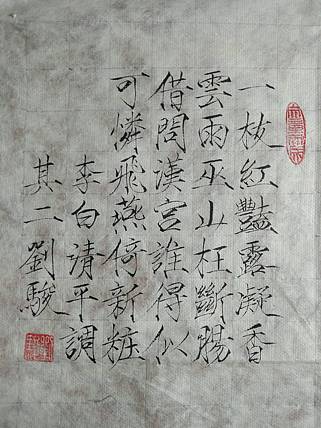 一枝紅豔露凝香
雲雨巫山枉斷腸
借問漢宮誰得似
可憐飛燕倚新粧
李白請平調
其二劉駿